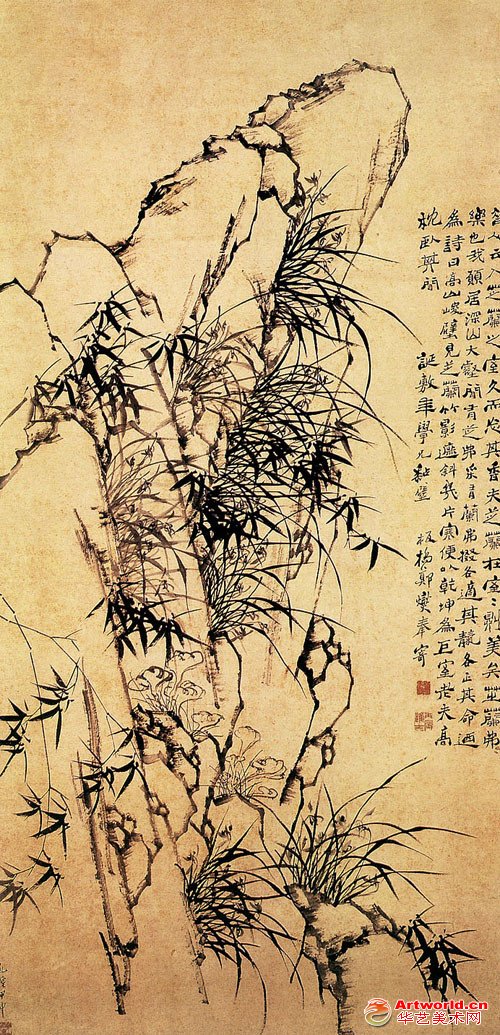 入芝蘭之室久而忘其香夫芝蘭在室〻則美矣芝蘭弗
樂也我願居深山大壑間有芝弗采有蘭弗掇各適其 各正其命迺
為詩曰高山峻壁見芝蘭竹影遮斜幾片寒便以乾坤為巨室老夫高
枕臥其間 誕敷年學兄粘壁 板橋鄭燮奉寄
Artworld.cn
华艺美术网